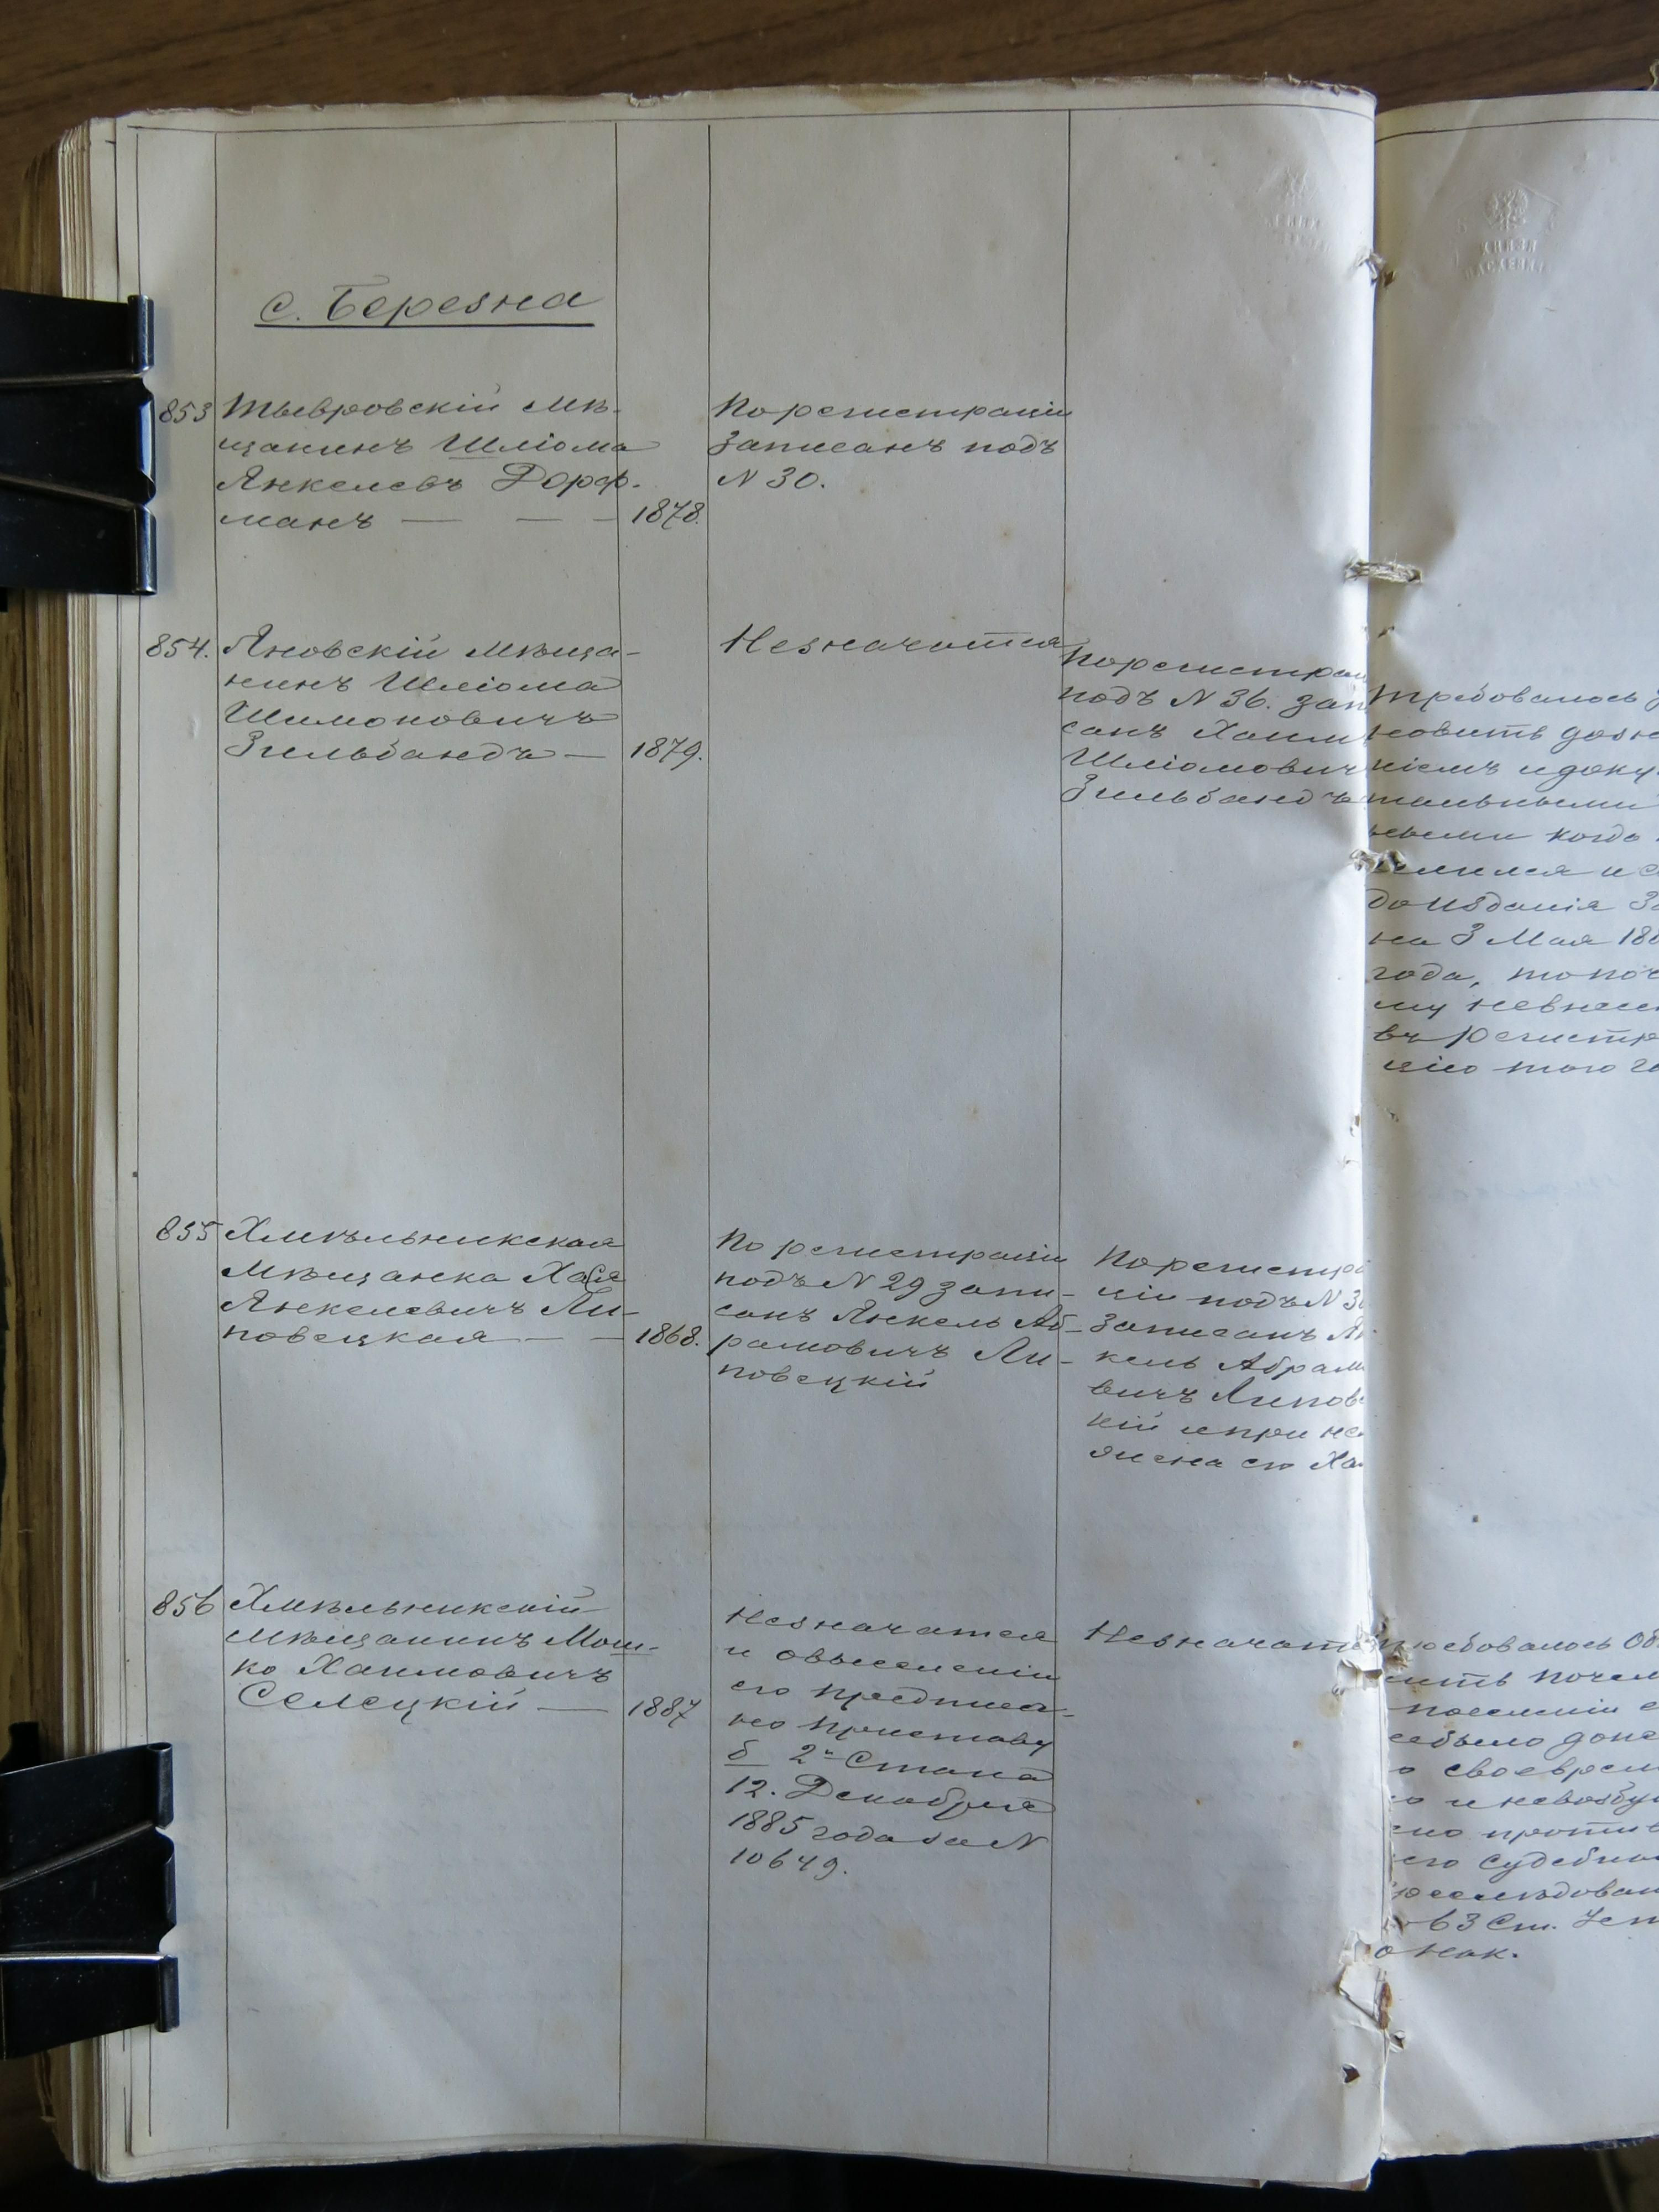 с. Березна
853 Тывровскій мѣ-
щанинъ Шліома
Янкелевъ Дорф-
манъ — — — 1878.
По регистраціи
записанъ подъ
N 30.
854. Яновскій мѣща-
нинъ Шліома
Шимоновичъ
Зильбандъ — 1879.
Незначится
По регистрац
подъ N 36. зап
санъ Хаим
Шліомович
Зильбандъ
требовалось
новить дозн
ніемъ и доку
тальными
ными когда
селился и
до изданія За
на 3 Мая 188
года, то поче
му невнесен
въ регистра
цію того го
855 Хмѣльникская
мѣщанка Хая
Янкелевичъ Ли-
повецкая — — 1868.
По регистраціи
подъ N 29 запи-
санъ Янкель Аб-
рамовичъ Ли-
повецкій
По регистра
ціи подъ N 3
записанъ Ян
кель Абрам
вичъ Липов
кій и при не
жена его Ха
856 Хмѣльникскій
мѣщанинъ Мош-
ко Хаимовичъ
Селецкій — 1887
Незначится
и овыселеніи
его предписа-
но приставу
2го Стана
12. Декабря
1885 года за N
10649.
Незначит
требовалось Об
нить почем
поселеніи
небыло доне
о своеврем
о и невозбу
но против
его судебно
преслѣдован
63 Ст. Уст
о нак.
КНЯЗЯ